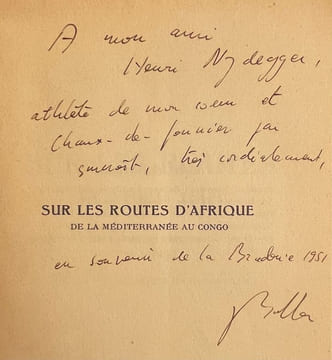 A mon ami
Henri Nydegger,
athlète de mon cœur et
Chaux-de-fonnier par
surcroît, très cordialement,
SUR LES ROUTES D'AFRIQUE
DE LA MÉDITERRANÉE AU CONGO
en souvenir de la Braderie 1951